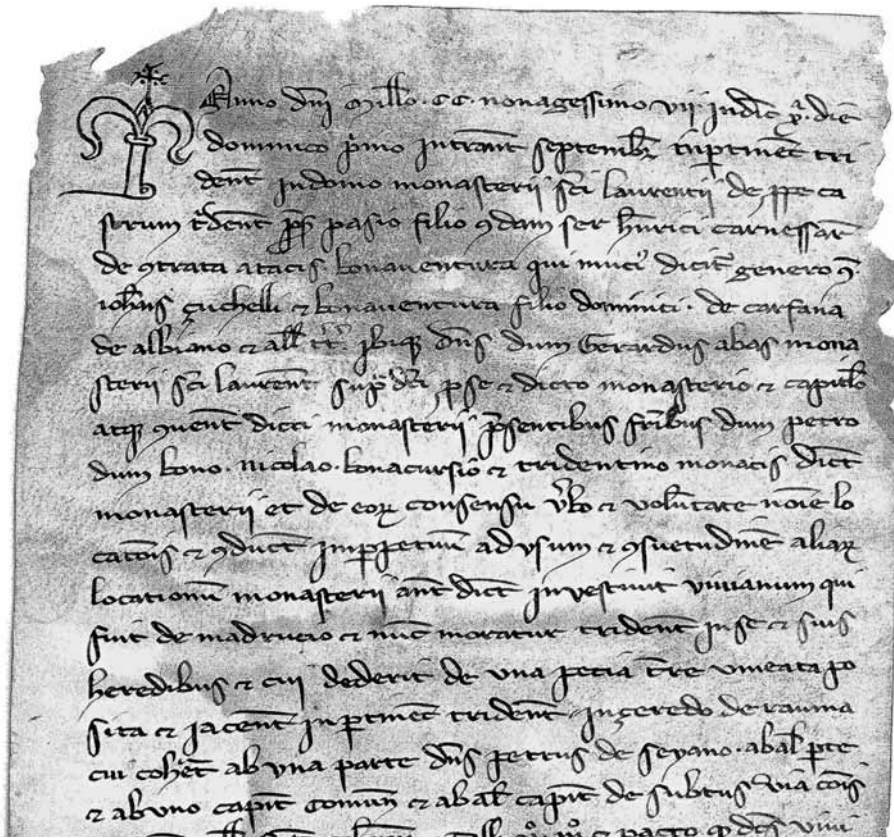 Anno dni Millo · CC · nonagessimo vii · indic x · die
dominico pmo intrant septembr in ptinenc tri
dent in domo monasterii sci laurencii de ppe ca
strum tdent pns pasio filio qdam ser hnrici carnessar
de gtrata atacis · bonaventura qui nunc dicit genero q ·
iohis çuchelli & bonaventura filio dominici · de carfana
de albiano & all tt · ibiq dns dum Gerardus abas mona
sterii sci laurent sup dci p se & dicto monasterio & capitlo
atq quent dicti monasterii psentibus fribus dum petro
dum bono · nicolao · bonacursio & tridentino monacis dict
monasterii et de eor consensu vbo & volutate noie lo
catois & gduct imppetuu ad usum & gsuetudine aliar
locationu monasterii ant dict investivit vivianum qui
fuit de madrucio & nuc moratur trident in se & suis
heredibus & cui dederit de una pecia tre vineata po
sita & iacent in ptinenc trident in çeredo de ravina
cui cohet ab una parte dns petrus de seyano · ab al pte
& ab uno capit comun & ab al capit de subtus via cois